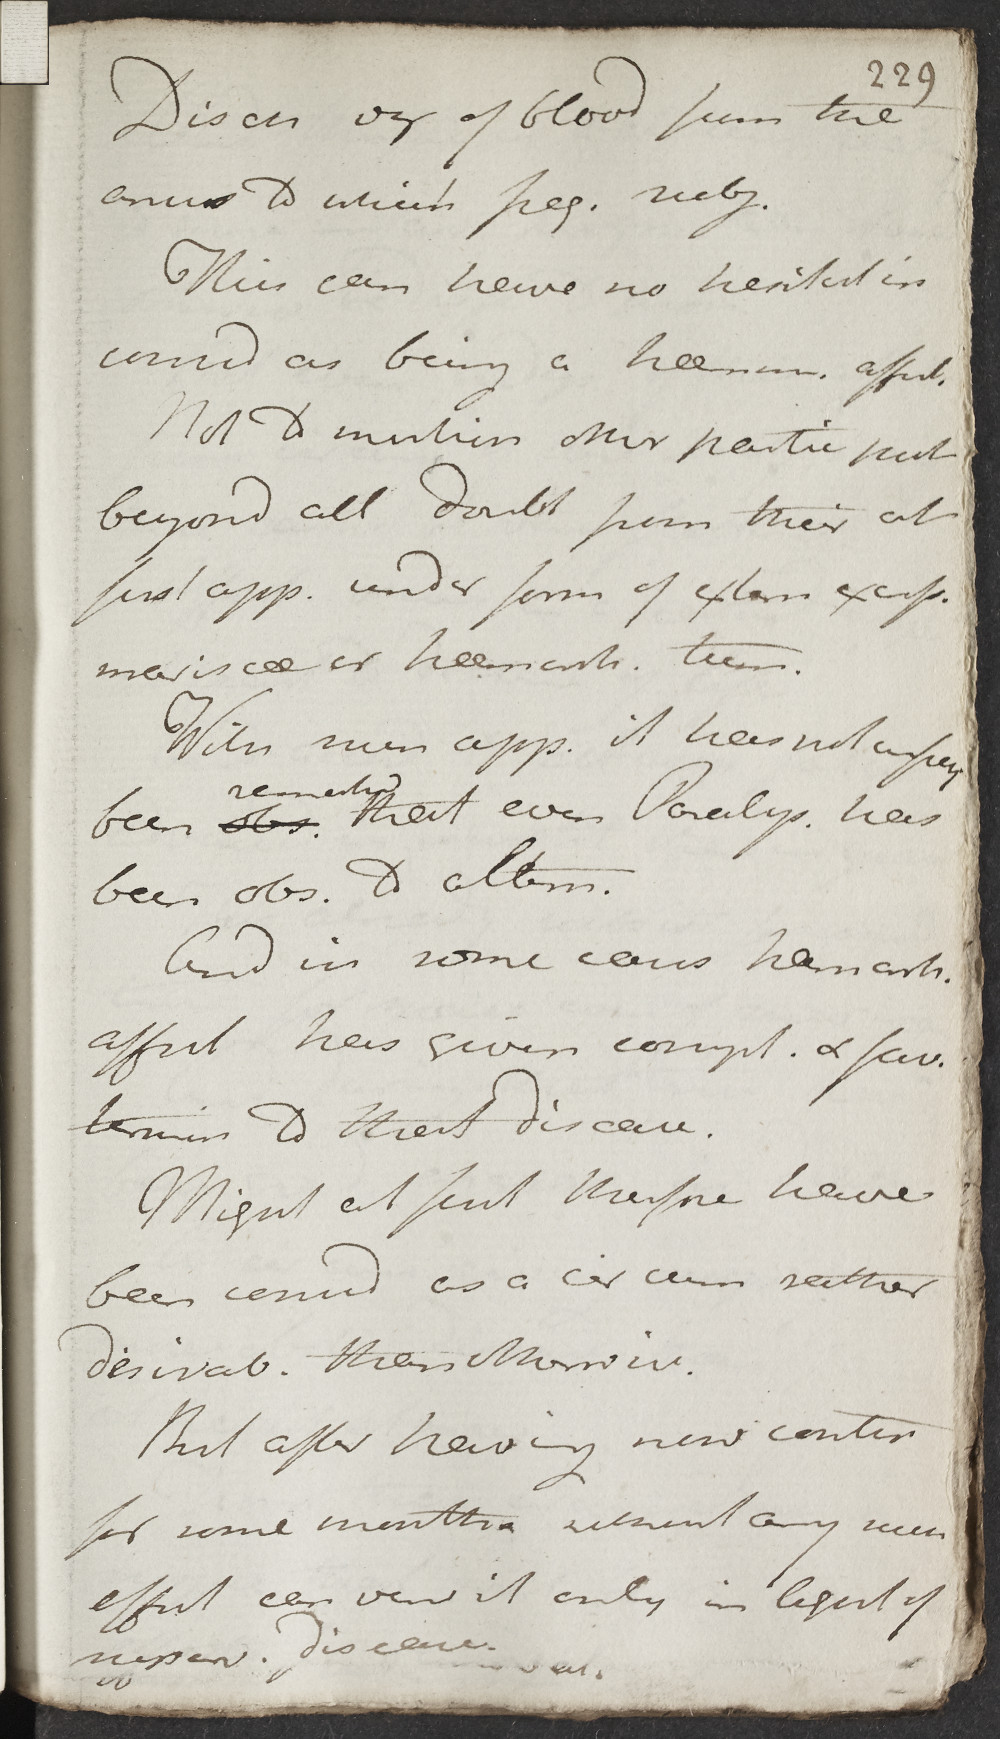 229
Disch of blood from the
anus to which freq. subj.
This can have no hesitat in
consid as being a haemorr. affect.
Not to mention other partic put
beyond all doubt from their at
first app. under form of extern excresc.
mariscae or haemorrh. tum.
With such app. it has not unfreq
been remarked that even Paralys. has
been obs. to altern.
And in some cases hemorrh.
affect has given compl. & fav.
termin to that disease.
Might at first therefore have
been consid as a circum rather
desirab. than otherwise.
But after having now contin
for some months without any such
effect can view it only in light of
superv. disease.